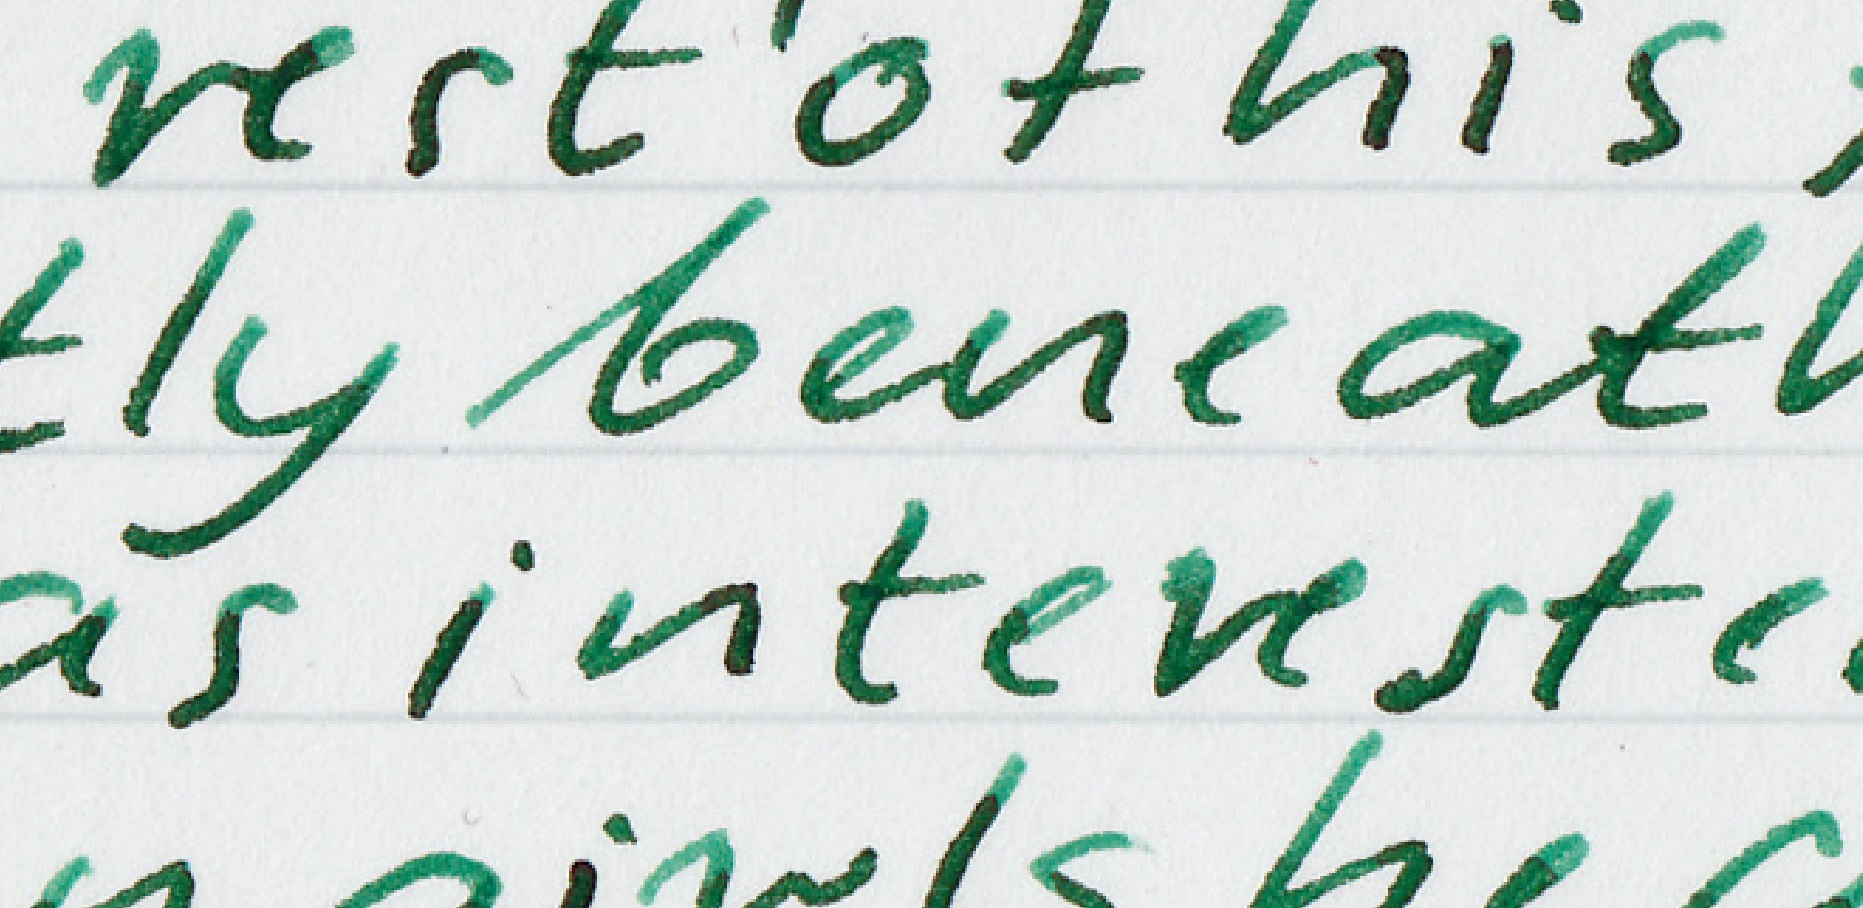 rest of his
tly beneath
as interested
girls he